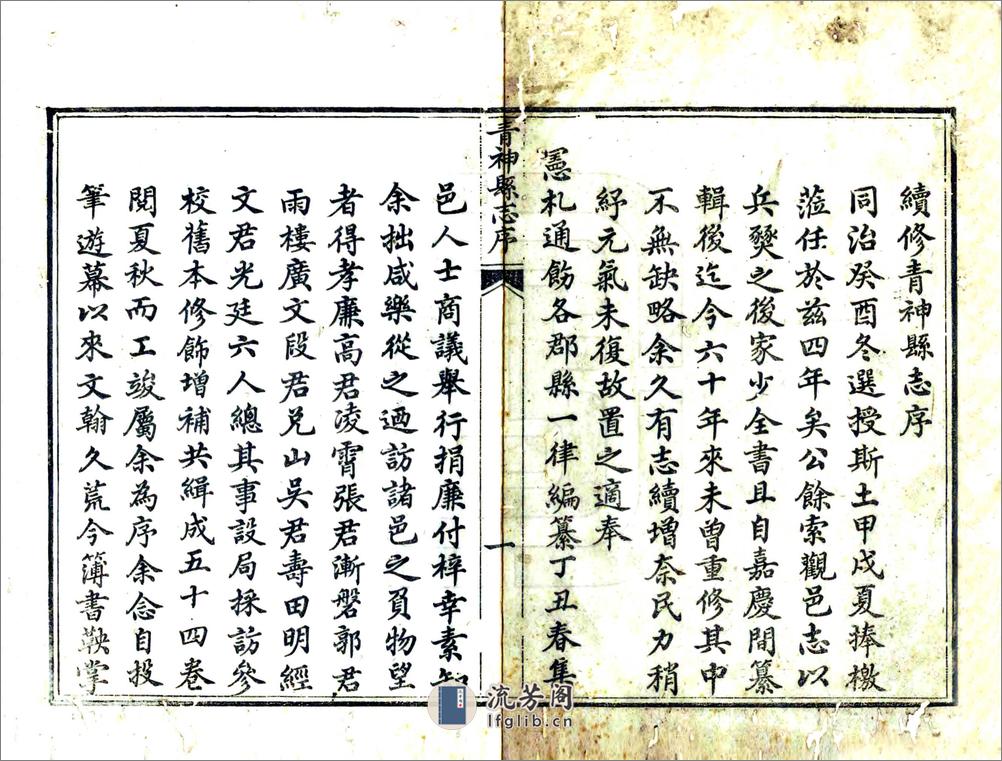 續修青神縣志序
同治癸酉冬選授斯土甲戌夏捧檄
蒞任於兹四年矣公餘索觀邑志以
兵燹之後家少全書且自嘉慶間纂
輯後迄今六十年來未曾重修其中
不無缺略余久有志續增奈民力稍
紓元氣未復故置之適奉
憲札通飭各郡縣一律編纂丁丑春集
青神縣志序
一
邑人士商議舉行捐廉付梓幸素知
余拙咸樂從之迺訪諸邑之負物望
者得孝廉高君凌霄張君漸磐郭君
雨樓廣文段君兑山吳君壽田明經
文君光廷六人總其事設局採訪參
校舊本修飾增補共緝成五十四卷
閱夏秋而工竣屬余為序余念自投
筆遊幕以來文翰久荒今簿書鞅掌
流芳阁
lfglib.cn